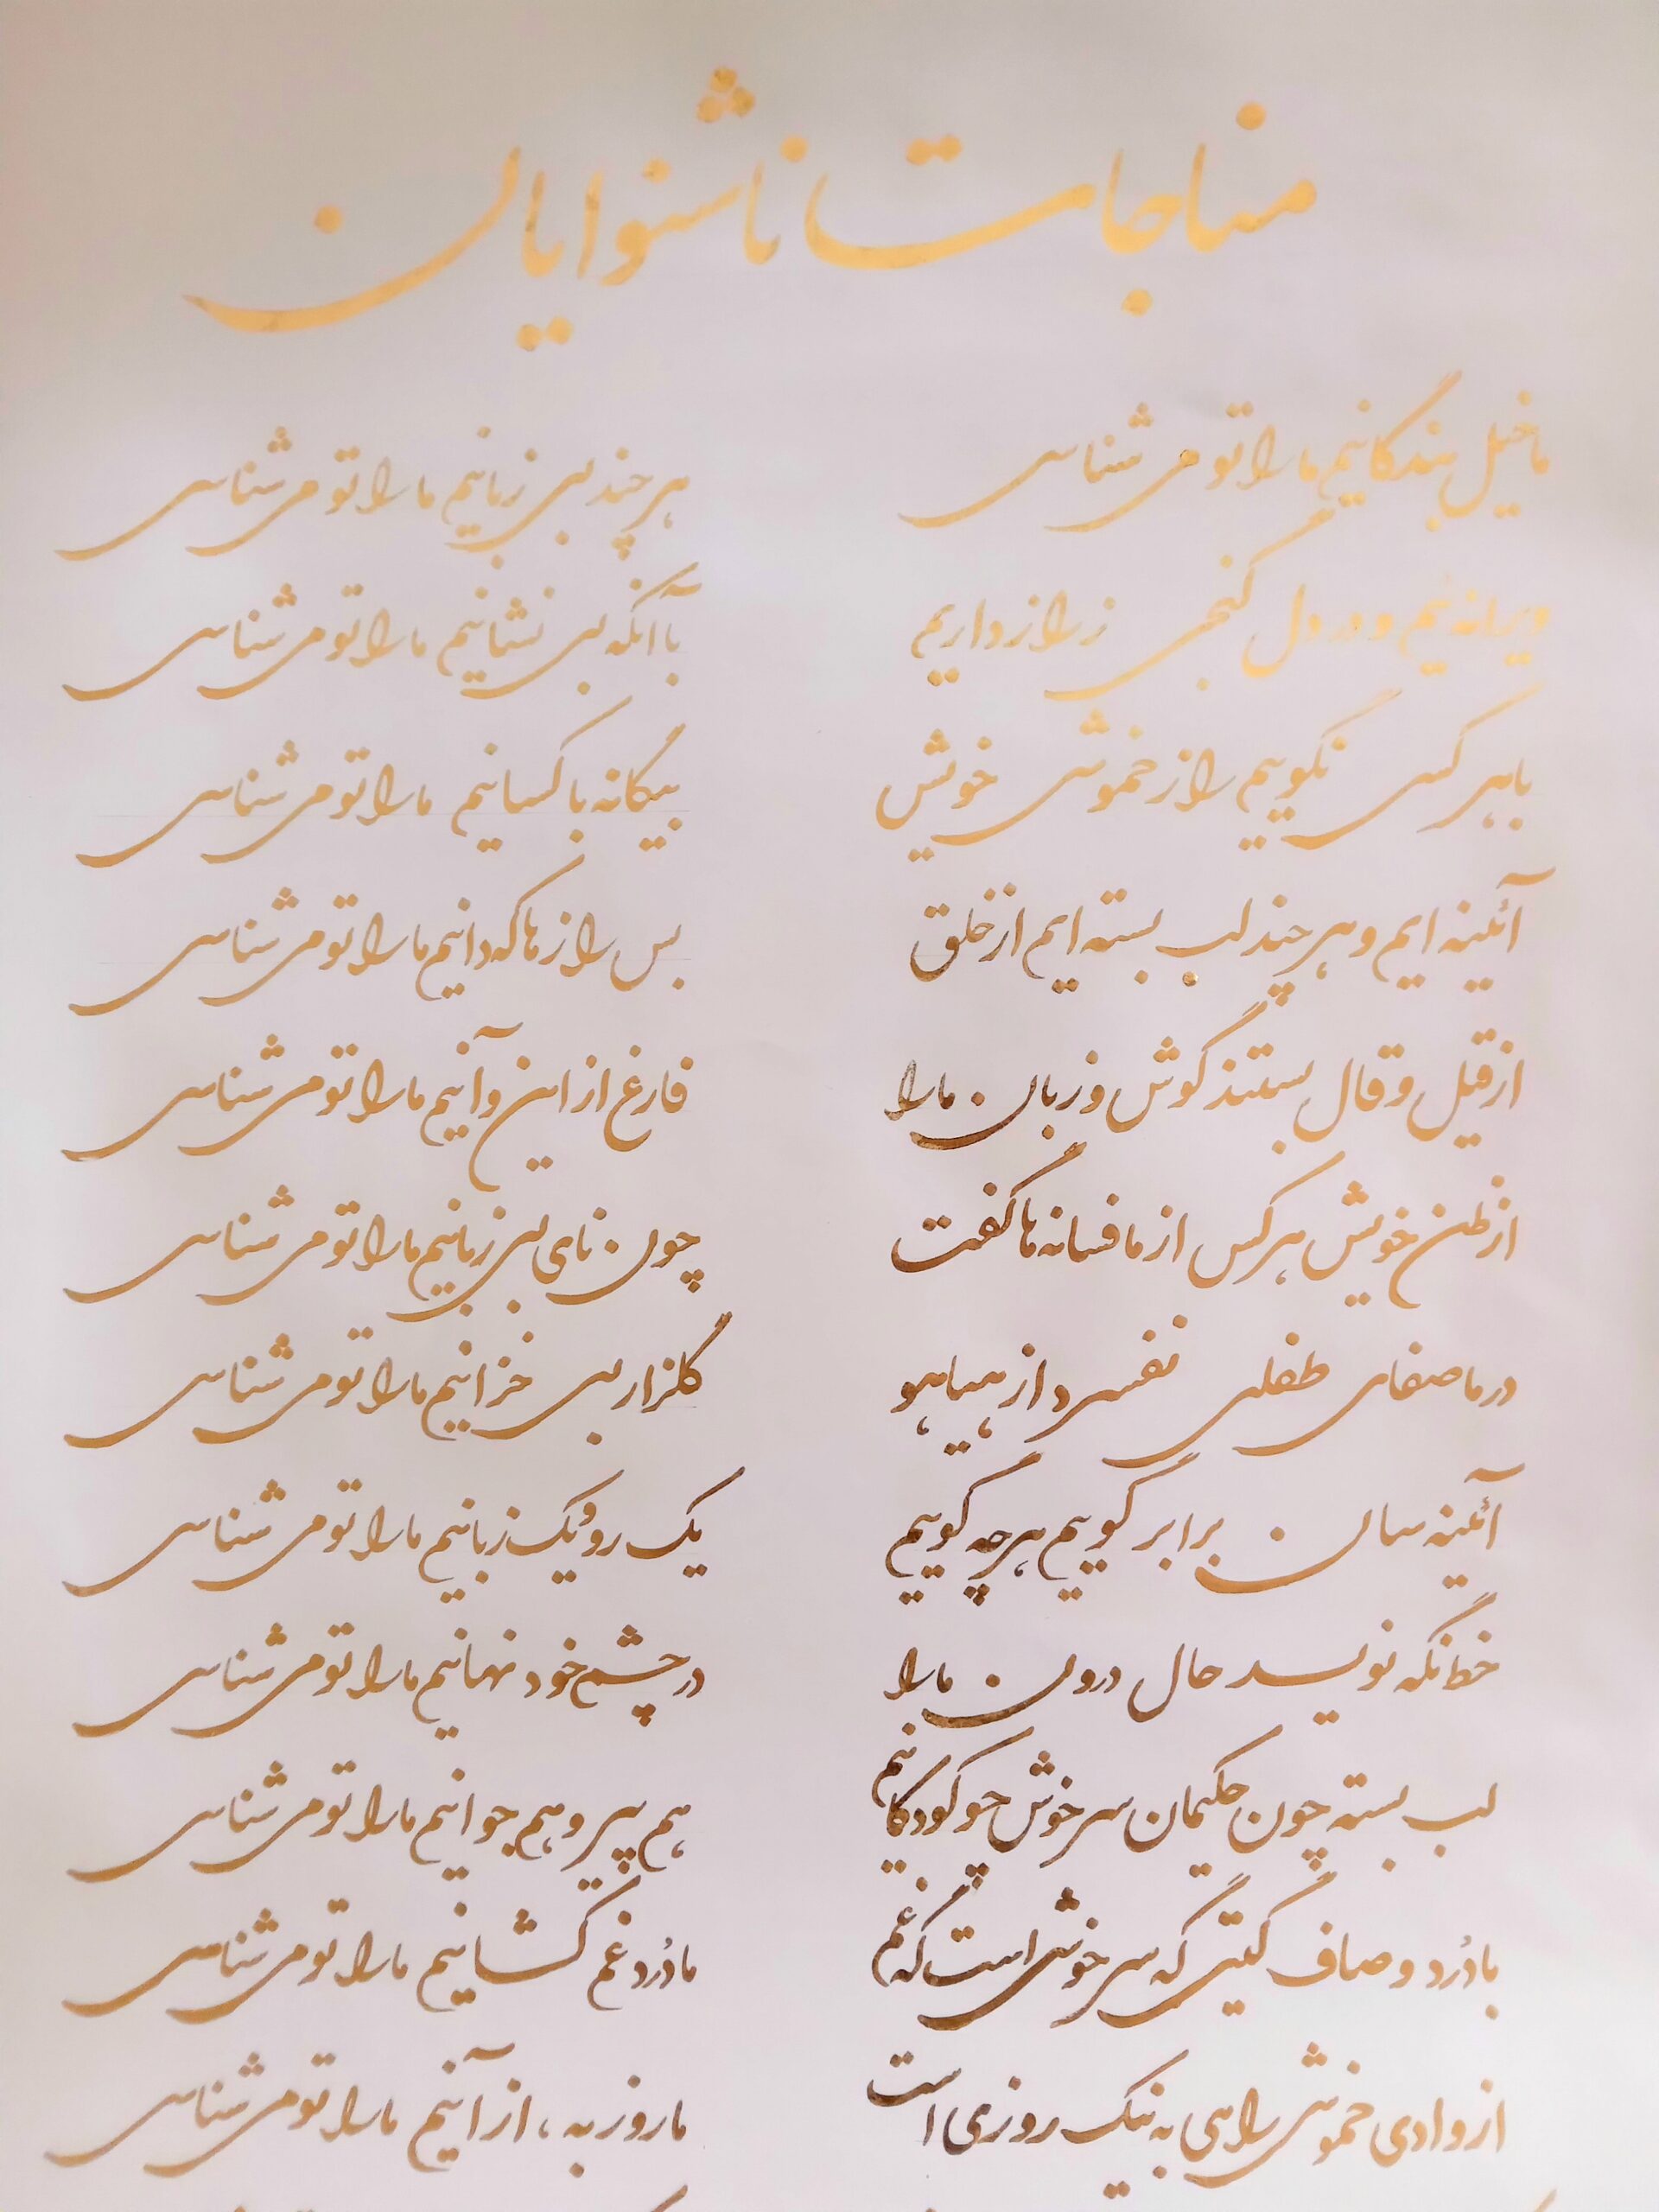 مناجات ناشنوایان
ما خیل بندگانیم ما را تو می شناسی هر چند بی زبانیم ما را تو می شناسی
ویرانه ئیم و در دل گنجی ز راز داریم با آنکه بی نشانیم ما را تو می شناسی
با هر کسی نگوییم راز خموشی خویش بیگانه با کسانیم ما را تو می شناسی
آئینه ایم و هر چند لب بسته ایم از خلق بس رازها که دانیم ما را تو می شناسی
از قیل و قال بستند گوش و زبان ما را فارغ از این و آنیم ما را تو می شناسی
از ظن خویش هر کس از ما فسانه ها گفت چون نای بی زبانیم ما را تو می شناسی
در ما صفای طفلی نفسرد از هیاهو گلزار بی خزانیم ما را تو می شناسی
آئینه سان برابر گوییم هر چه گوییم یک رو و یک زبانیم ما را تو می شناسی
خط نگه نویسد حال درون ما را در چشم خود نهانیم ما را تو می شناسی
لب بسته چون حکیمان سر خوش چو کودکانیم هم پیر و هم جوانیم ما را تو می شناسی
با دُرد و صاف گیتی گه سرخوشی است گه غم ما دُرد غم کشانیم ما را تو می شناسی
از وادی خموشی راهی به نیک روزی است ما روز به، از آنیم ما را تو می شناسی